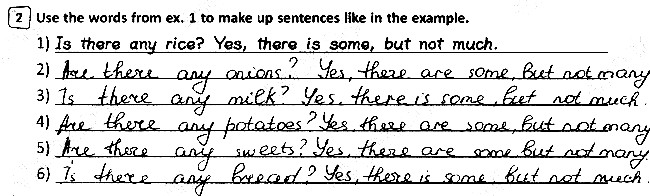 2 Use the words from ex. 1 to make up sentences like in the example.
1) Is there any rice? Yes, there is some, but not much.
2) Are there any onions? Yes, there are some, but not many
3) Is there any milk? Yes, there is some, but not much.
4) Are there any potatoes? Yes, there are some, but not many
5) Are there any sweets? Yes, there are some but not many.
6) Is there any bread? Yes, there is some, but not much.